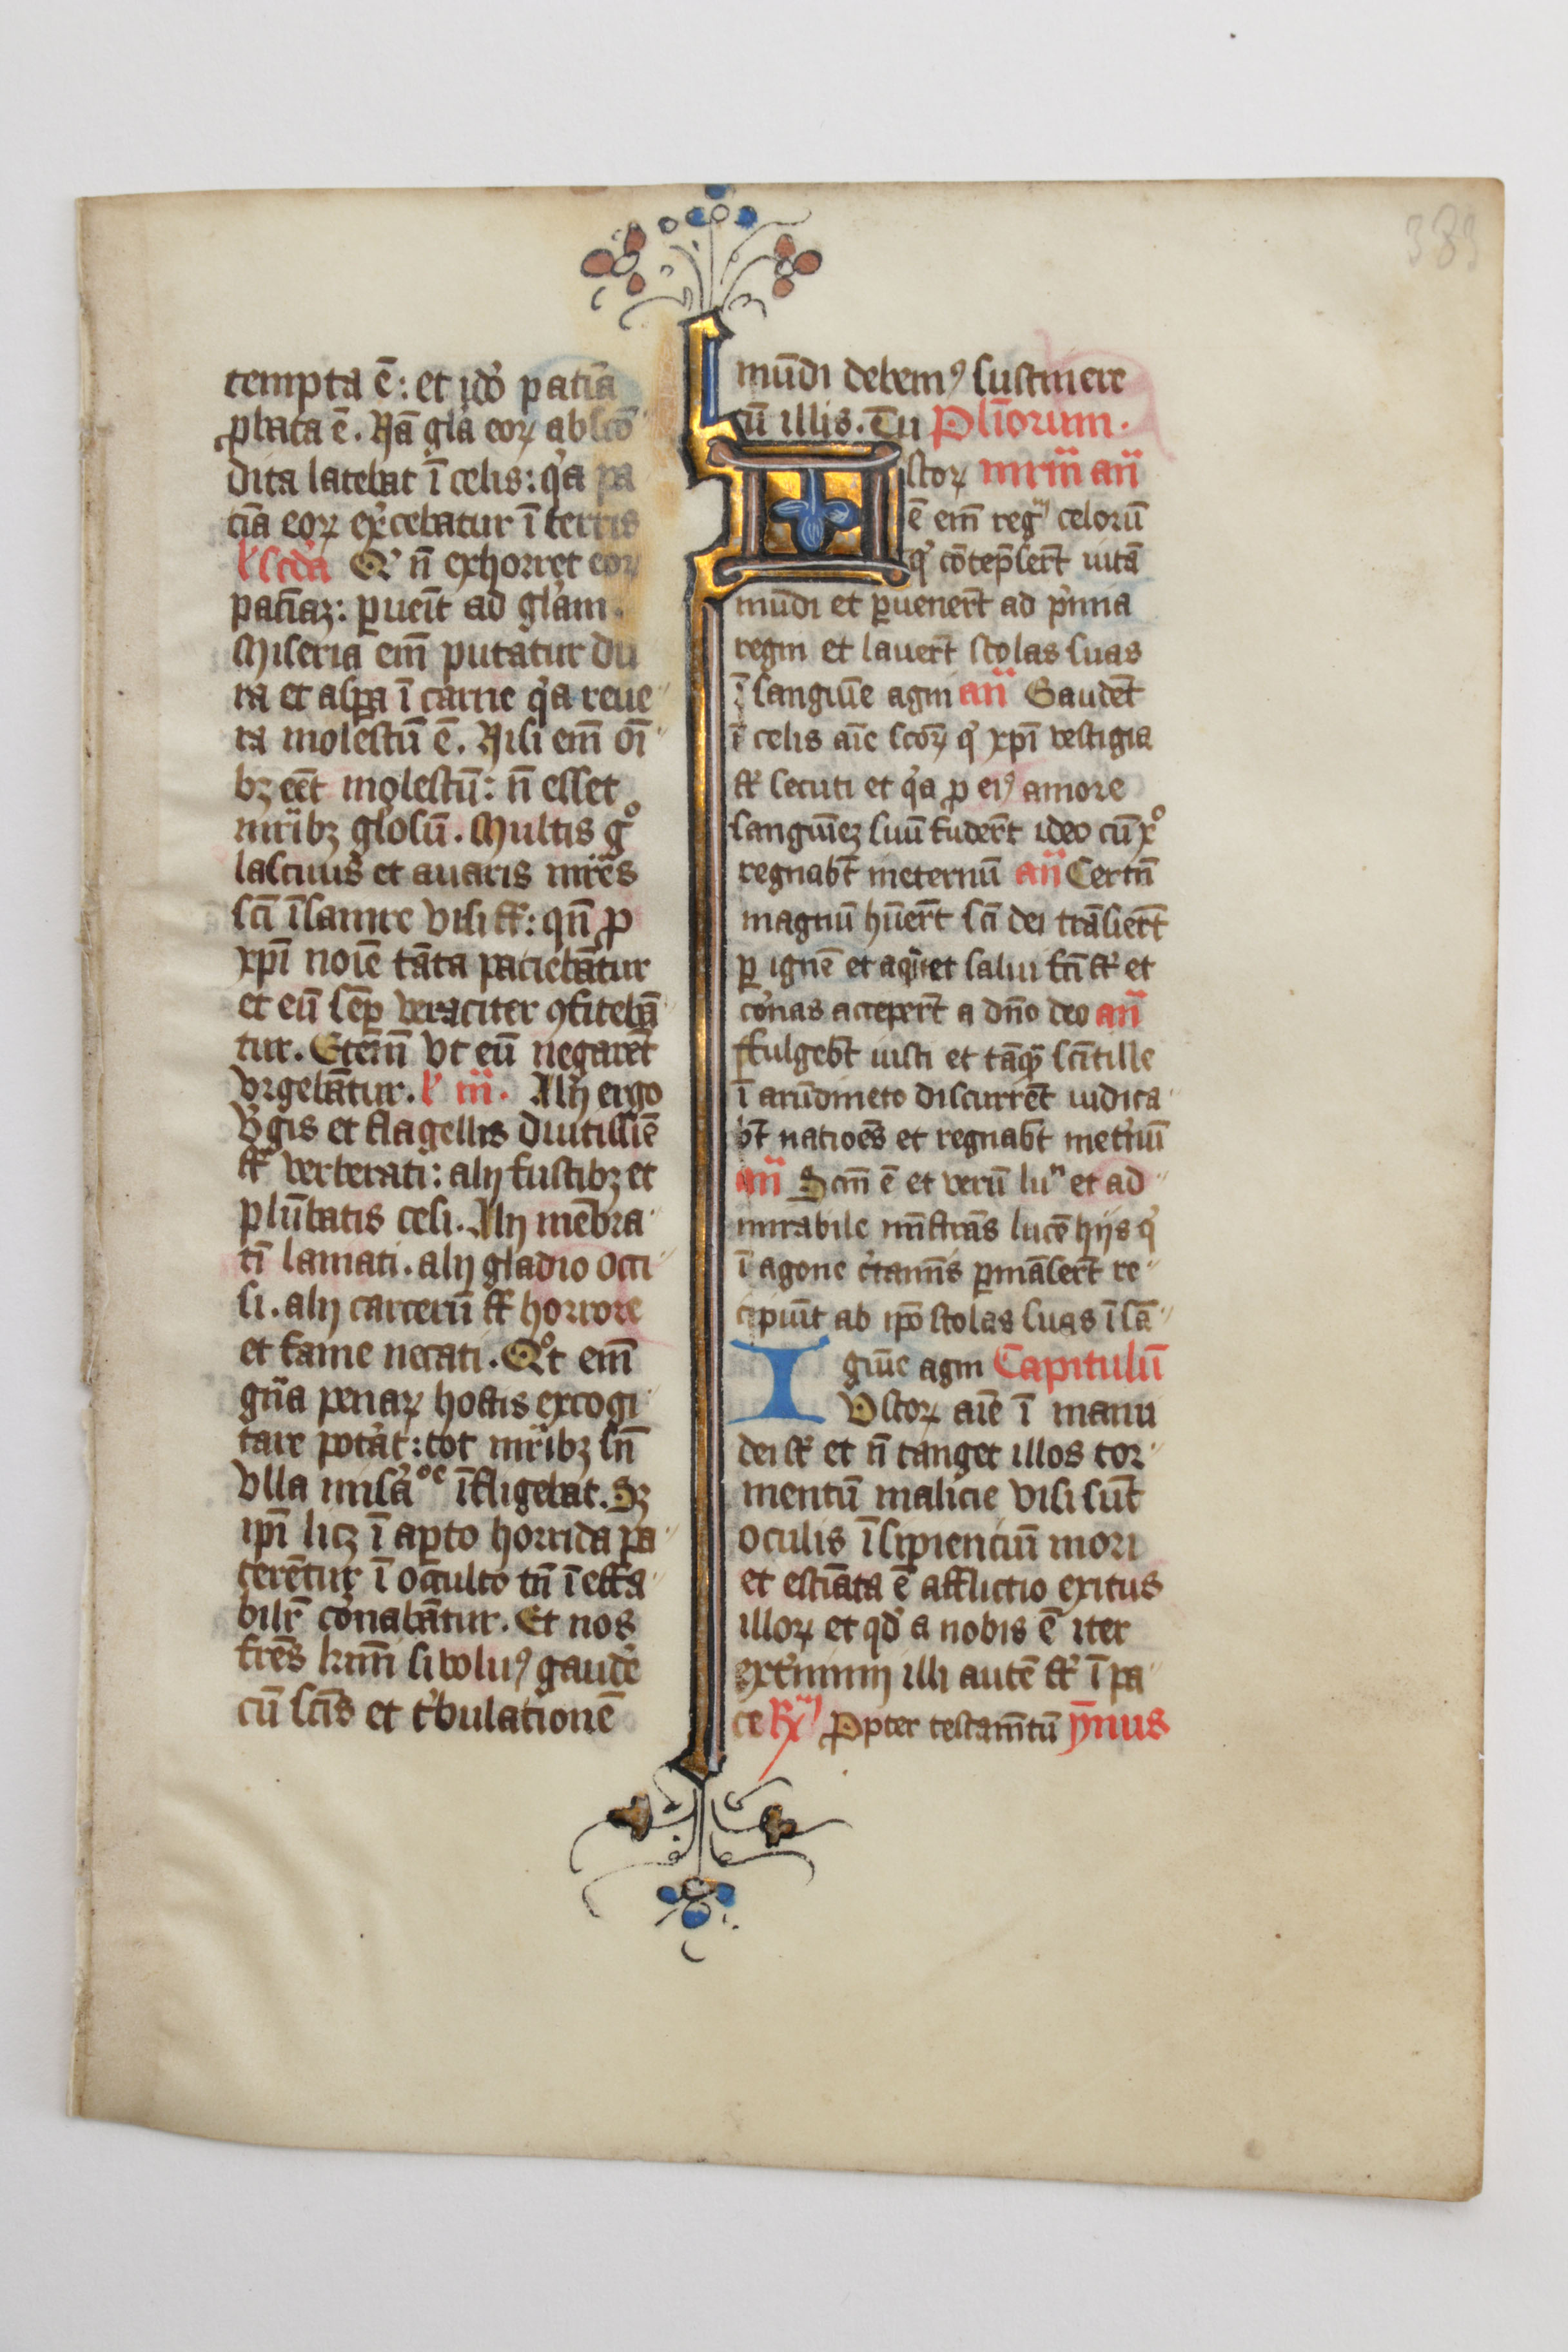 383
tempta ē: et ıdo̓ patīa
ꝓbata ē. Nā gl̓a eoꝝ absco̅
dita latebat ī celis: q̓a pa
cīa eoꝝ ex̓cebatur ī terris
l̓ sc̅da Q̓ n̄ exhorret eoꝝ
patīaꝫ: ꝑueīt ad gl̓am.
Miseria em̄ putatur du
ra et aspa̅ ī carne q̓a reue
ra molestū ē. Nisi em̄ oī
bꝫ eēt molestū: n̄ esset
mr̄ibꝫ gl̓osū. Multis gͦ
lasciuis et auaris mr̄es
sc̄i īsanire visi sſ̄: qn̄ ꝓ
xp̄i noīe tāta paciebātur
et eū sēꝑ veraciter ꝯfitebā
tur. Etem̄ vt eū negarēt
vrgebātur. l̓ iii. Alij ergo
v̓gis et flagellis diutissīe
sſ̄ verberati: alij fustibꝫ et
plūbatis cesi. Alij mēbra
tī laniati. alij gladio occi
si. alij carcerū sſ̄ horrore
et fame necati. Qͦt em̄
gn̄a penaꝝ hostis excogi
tare pot̓at: tot mr̄ibꝫ sn̄
vlla mis̓aͦᵉ īfligebat. Sꝫ
ip̄i licꝫ ī aꝑto horrida pa
terētur ī occulto tn̄ ī effa
bilr̄ co̓nabātur. Et nos
fr̄es km̄i si volūꝯ gaude̓
cū sc̄is et t̓bulationē
mūdi debemꝯ sustinere
cū illis. Tu Pl̄iorum.
Istoꝝ mr̄m̄ an̄
ē em̄ regᵐ celorū
q̓ cōtēpser̄t uitā
mūdi et ꝑuener̄t ad p̓mia
regni et lauer̄t stolas suas
ī sanguīe agni an̄ Gaudēt
ī celis aīe sc̄oꝝ q̓ xp̄i vestigia
sſ̄ secuti et q̓a ꝓ eiꝯ amore
sanguīeꝫ suū fuder̄t ideo cū xͦ
regnab̄t ineternū an̄ Certn̄
magnū hūer̄t sc̄i dei trāsier̄t
ꝑ ignē et aquā et salui fc̄i sſ̄ et
co̓nas acceper̄t a dn̄o deo an̄
Ffulgeb̄t iusti et tāqꝫ scītille
ī arūdineto discurrēt iudica
b̄t natioēs et regnab̄t inet̓nū
an̄ Scm̄ ē et verū luⁿ et ad
mirabile mīstrās lucē hijs q̓
ī agone c̓tamīs ꝑmāser̄t re
cipiūt ab ip̄o stolas suas ī sā
guīe agni Capitulū
Iustoꝝ aīe ī manu
dei sſ̄ et n̄ tanget illos tor
mentū malicie visi sūt
oculis īsipienciū mori
et estīata ē afflictio exitus
illoꝝ et qd̓ a nobis ē iter
ext̓minij illi autē sſ̄ ī pa
ce Rͫ Ꝓpter testam̄tū ȳnus